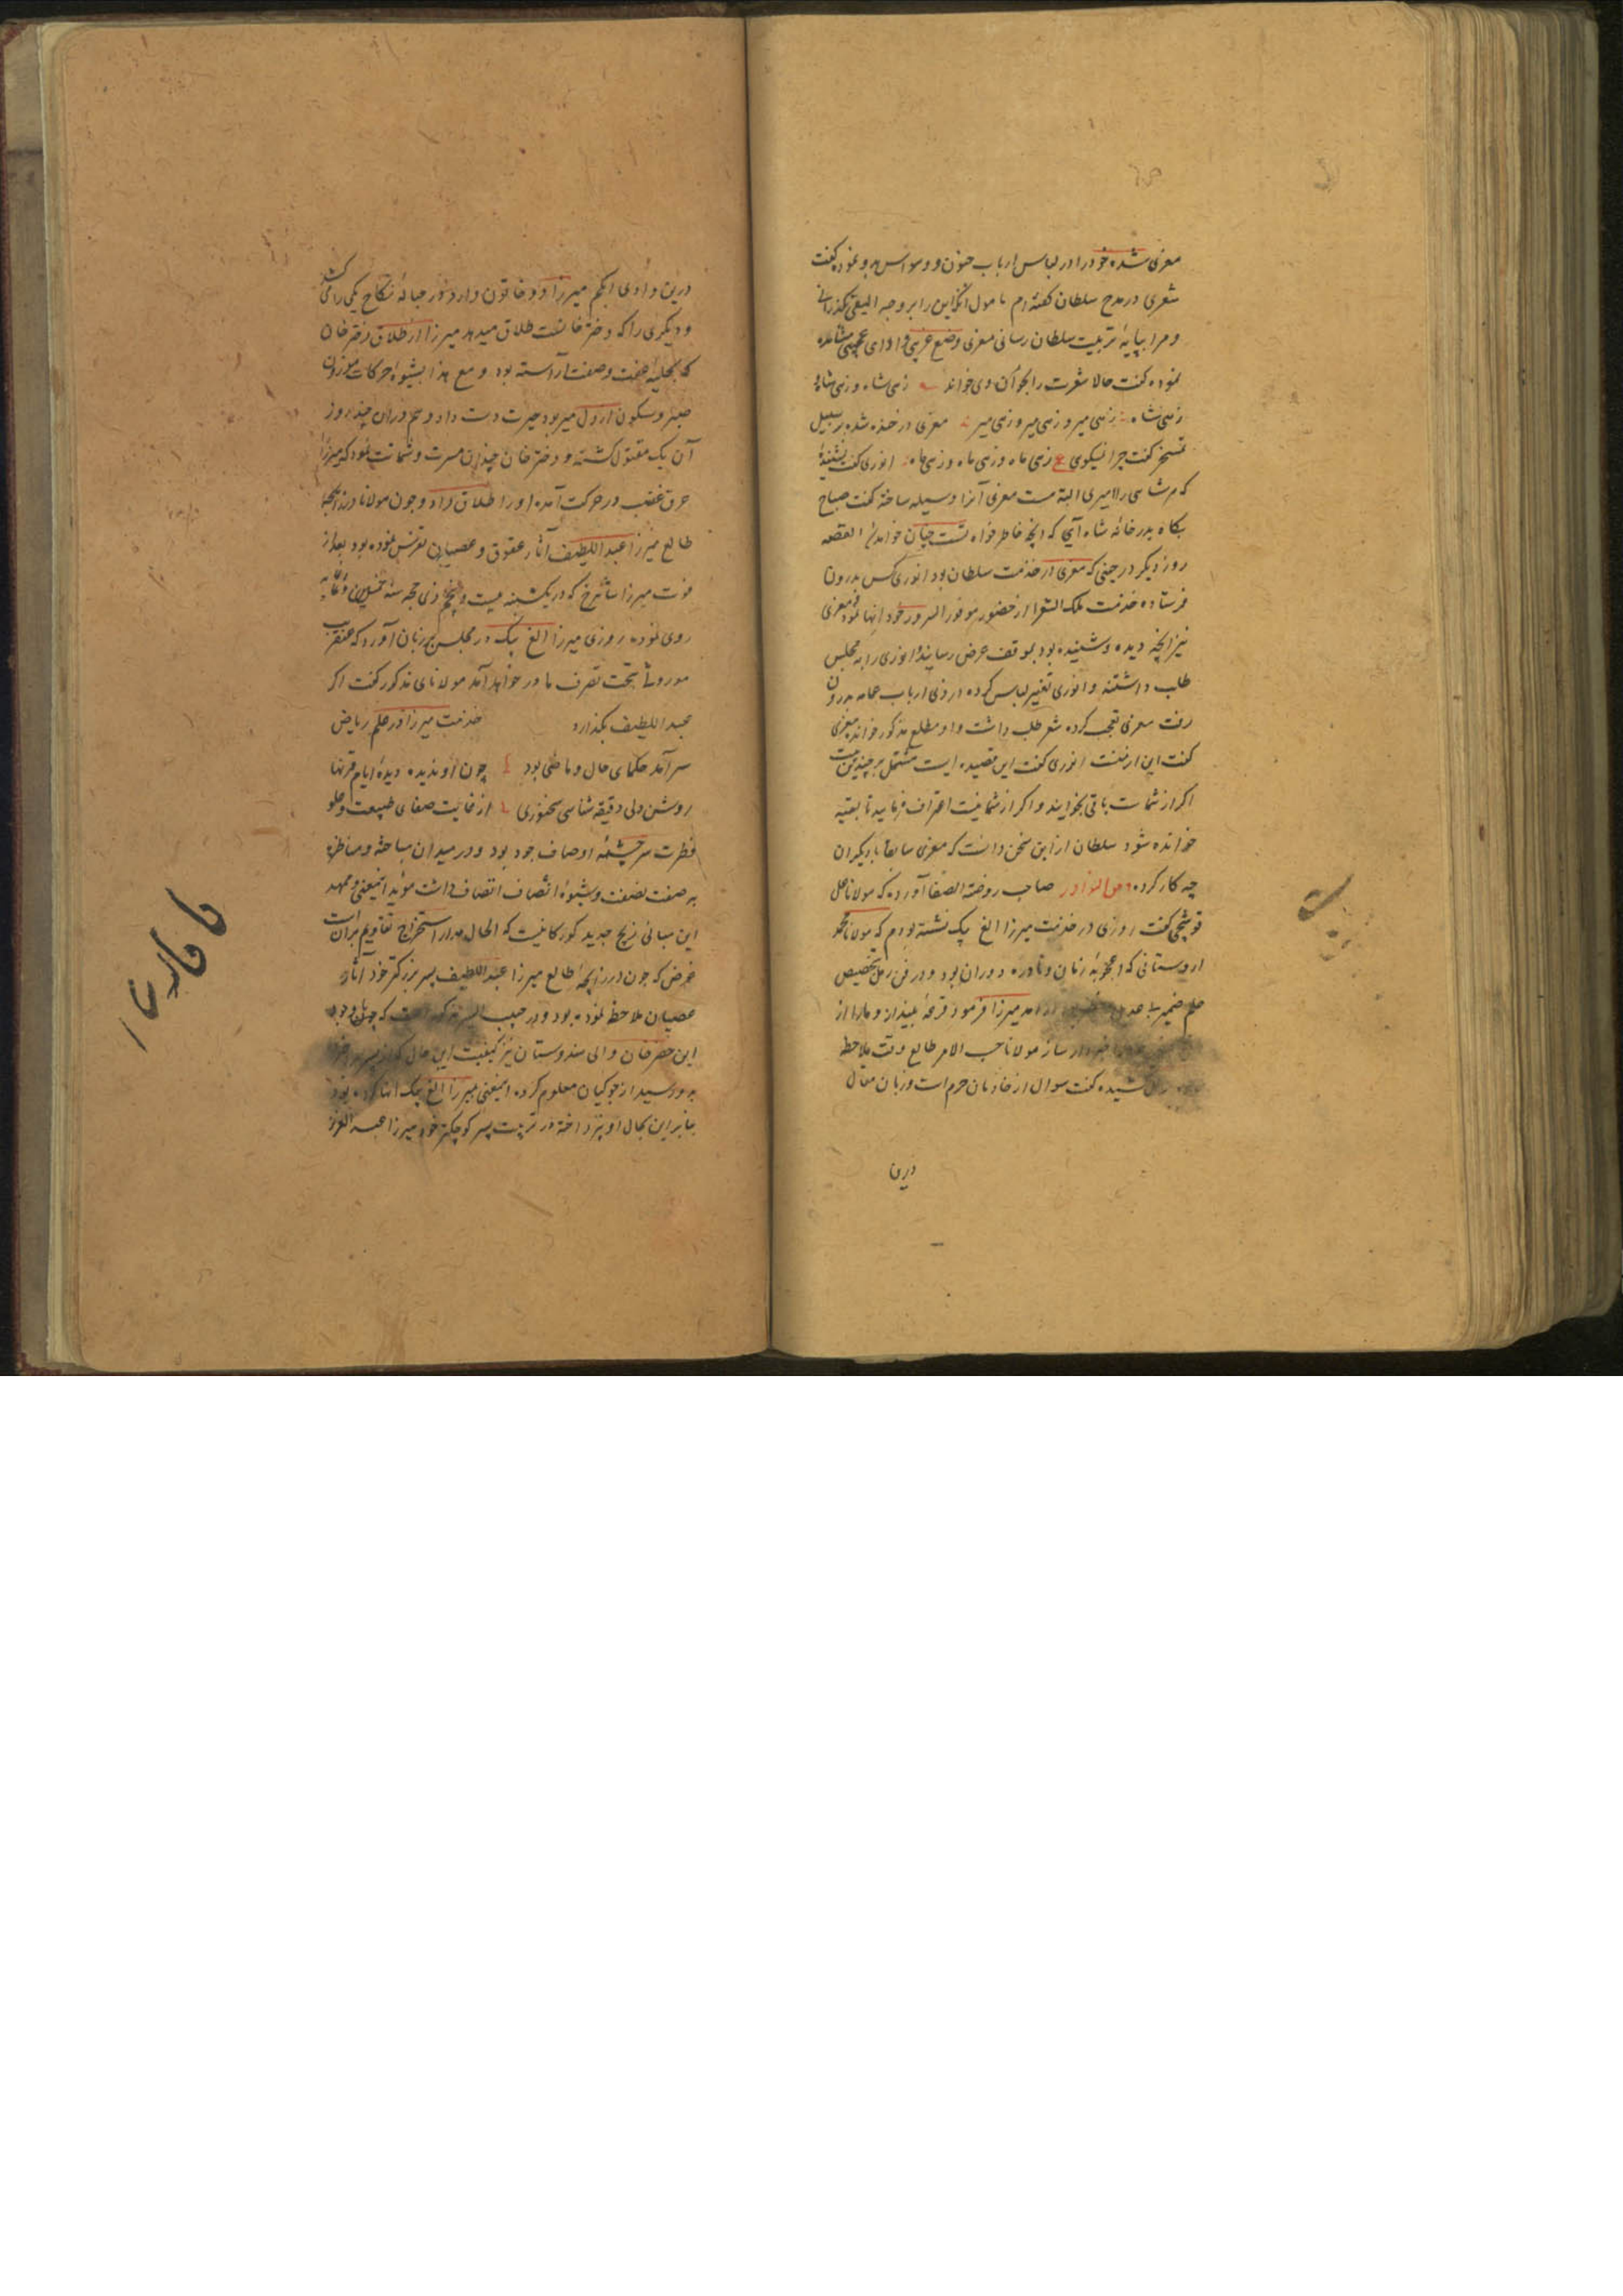 معزی شده خود را در لباس ارباب جنون و وسواس بدو نموده گفت
شعری در مدح سلطان گفته‌ام مامول انکه این را بر وجه الیق بگذرانی
و مرا بپایهٔ تربیت سلطان رسانی معزی وضع غریب و ادای عجیب مشاهده
نموده گفت حالا شعرت را بخوان وی خواند زهی شاه و زهی شاه و
زهی شاه زهی میر و زهی میر و زهی میر معزی در خنده شده بر سبیل
تمسخر گفت چرا نمیگوی ع زهی ماه و زهی ماه و زهی ماه انوری گفت
که هر شاهی را میری البته هست معزی آنرا وسیله ساخته گفت صباح
بگاه بدر خانه شاه آی که انچه خاطر خواه تست چنان خواهد القصه
روز دیگر در حینی که معزی در خدمت سلطان بود انوری کس بدرون
فرستاده خدمت ملک الشعرا از حضور موفور السرور خود انها نمود معزی
نیز انچه دیده و شنیده بود بموقف عرض رسانیده انوری را به مجلس
طلب داشتند و انوری تغییر لباس کرده در زی ارباب عمامه بدرون
رفت معزی تعجب کرده شعر طلب داشت و او مطلع مذکور خوانده معزی
گفت این از منست انوری گفت این قصیده ایست مشتمل بر چندین بیت
اکر از شماست باقی بخوانید و اکر از شما نیست اعتراف فرمایید تا بقیه
خوانده شود سلطان از این سخن دانست که معزی سابقا با دیگران
چه کار کرده من النوادر صاحب روضة الصفا آورده که مولانا علی
قوشچی گفت روزی در خدمت میرزا الغ بیک نشسته بودم که مولانا محمد
اردستانی که اعجوبهٔ زمان و نادره دوران بود و در فن رمل بتخصیص
علم ضمیر در آمد میرزا فرمود قرعهٔ بینداز و ما را از
خبردار ساز مولانا حسب الامر طالع وقت ملاحظه
کشیده گفت سوال از خادمان حرم است و زبان مقال
درین
درین وادی انکم میرزا دو خاتون دارد و از حباله نکاح یکی را می کشد
و دیگری را که دختر خانست طلاق میدهد میرزا از طلاق دختر خان
که بحلیه عفت و صفت آراسته بود و مع هذا بشیوه حرکات موزون
صبر و سکون از دل میربود حیرت دست داد و هم در ان چند روز
آن یک مقتول گشته و دختر خان چندان مسرت و شماتت نمود که میرزا
عرق غضب در حرکت آمده او را طلاق داد و چون مولانا در زایجه
طالع میرزا عبد اللطیف آثار عقوق و عصیان تفرس نموده بود بعد از
فوت میرزا شاهرخ که در یکشنبه بیست و پنجم ذی حجه سنه خمسین و ثمانمایه
روی نموده روزی میرزا الغ بیک در مجلس بر زبان آورد که عنقریب
موروثی بتحت تصرف ما در خواهد آمد مولانای مذکور گفت اکر
عبد اللطیف بگذارد خدمت میرزا در علم ریاضی
سر آمد حکمای حال و ماضی بود چون او ندیده دیدهٔ ایام قرنها
روشن دلی دقیقه شناسی سخنوری از غایت صفای طبیعت و علو
فطرت سر چشمه اوصاف جود بود و در میدان مباحثه و مناظره
به صفت نصفت و شیوهٔ انصاف اتصاف داشت موید اینمعنی و ممهد
این مبانی زیج جدید کورکانیست که الحال مدار استخراج تقاویم بران است
غرض که چون در زایجهٔ طالع میرزا عبد اللطیف پسر بزرگتر خود آثار
عصیان ملاحظه نموده بود و در حبیب السیر مذکور است که
این خضر خان والی هندوستان نیز کیفیت این حال که از پسر
بدو رسید از جوکیان معلوم کرده اینمعنی میرزا الغ بیک انها کرده بود
بنابراین بحال او نپرداخته در تربیت پسر کوچکتر خود میرزا عبد العزیز